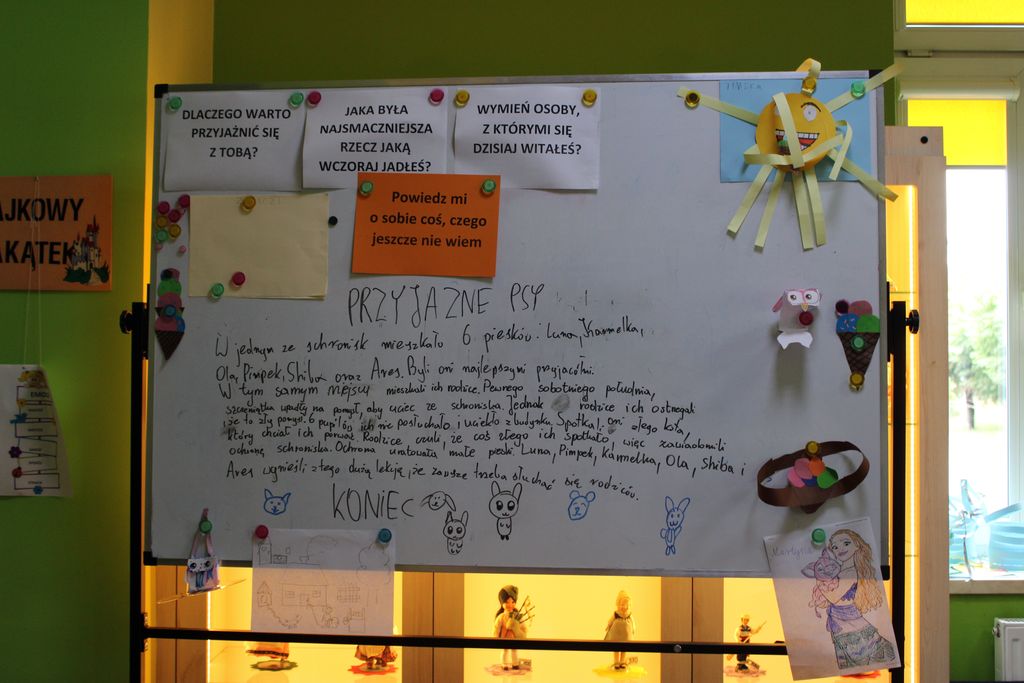 DLACZEGO WARTO
PRZYJAŹNIĆ SIĘ
Z TOBĄ?
JAKA BYŁA
NAJSMACZNIEJSZA
RZECZ JAKĄ
WCZORAJ JADŁEŚ?
WYMIEŃ OSOBY,
Z KTÓRYMI SIĘ
DZISIAJ WITAŁEŚ?
Powiedz mi
o sobie coś, czego
jeszcze nie wiem
AJKOWY
AKĄTEK
PRZYJAZNE PSY
W jednym ze schronisk mieszkało 6 piesków: Luna, Karmelka,
Ola, Pimpek, Shiba oraz Ares. Byli oni najlepszymi przyjaciółmi.
W tym samym miejscu mieszkali ich rodzice. Pewnego sobotniego południa,
szczeniątka wpadły na pomysł, aby uciec ze schroniska. Jednak rodzice ich ostrzegali
, że to zły pomysł. 6 pupilów ich nie posłuchało i uciekło z budynku. Spotkali oni złego kota,
który chciał ich porwać. Rodzice czuli, że coś złego ich spotkało, więc zawiadomili
ochronę schroniska. Ochrona uratowała małe pieski. Luna, Pimpek, Karmelka, Ola, Shiba i
Ares wynieśli z tego dużą lekcję, że zawsze trzeba słuchać się rodziców.
KONIEC
Martyna